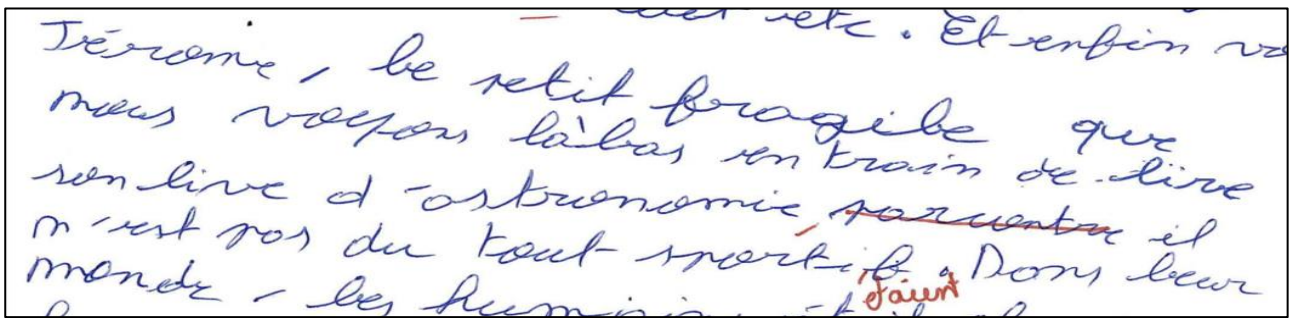 etc. Et enfin
Jérome, le petit fragile que
nous voyons làbas en train de lire
son live d'astronomie, parcontre il
n'est pas du tout sportif. Dans leur
monde, les
étaient